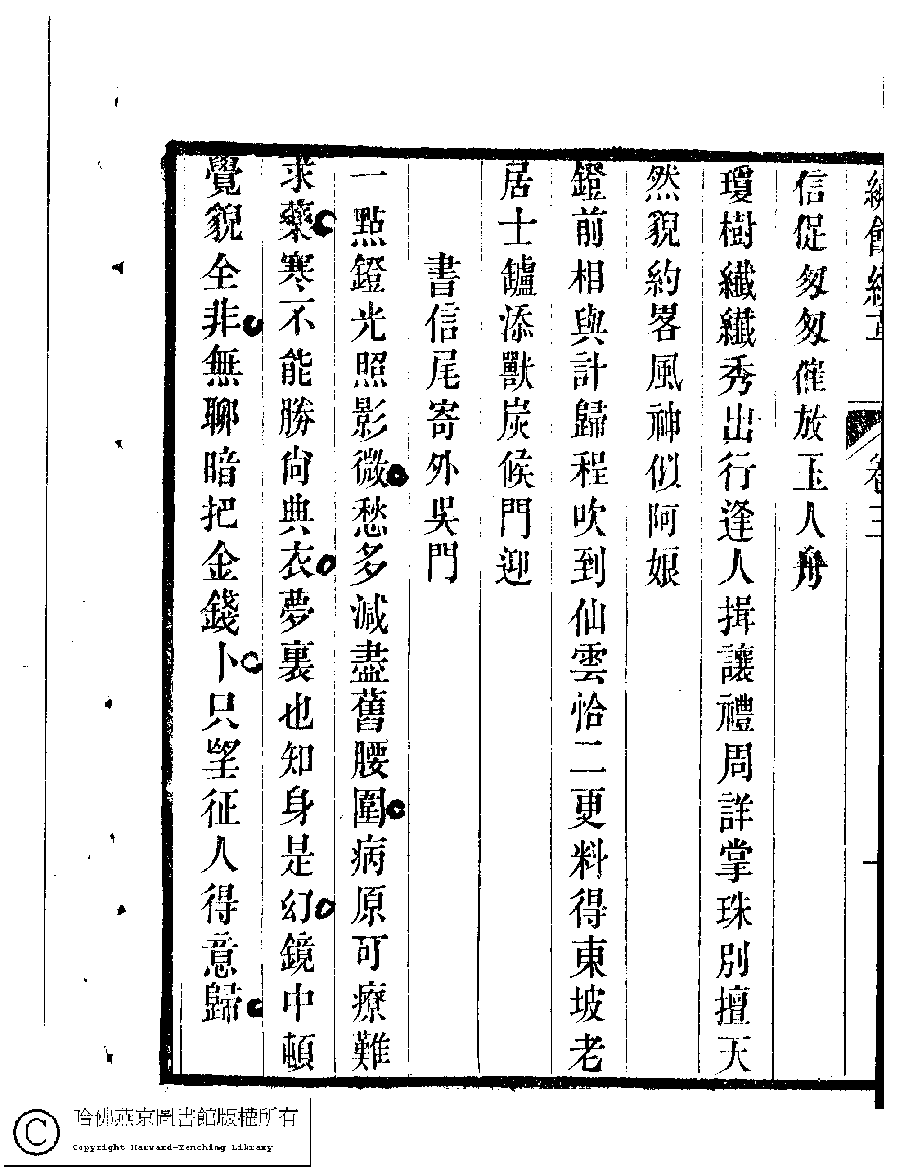 卷三
信促匆匆催放玉人舟
瓊樹纖纖秀出行逢人揖讓禮周詳掌珠別擅天
然貌約畧風神似阿娘
鐙前相與計歸程吹到仙雲恰二更料得東坡老
居士鑪添獸炭候門迎
書信尾寄外吳門
一點鐙光照影微愁多減盡舊腰圍病原可療難
求藥寒不能勝尙典衣夢裏也知身是幻鏡中頓
覺貌全非無聊暗把金錢卜只望征人得意歸
哈佛燕京圖書館版權所有
Copyright Harvard-Yenching Library